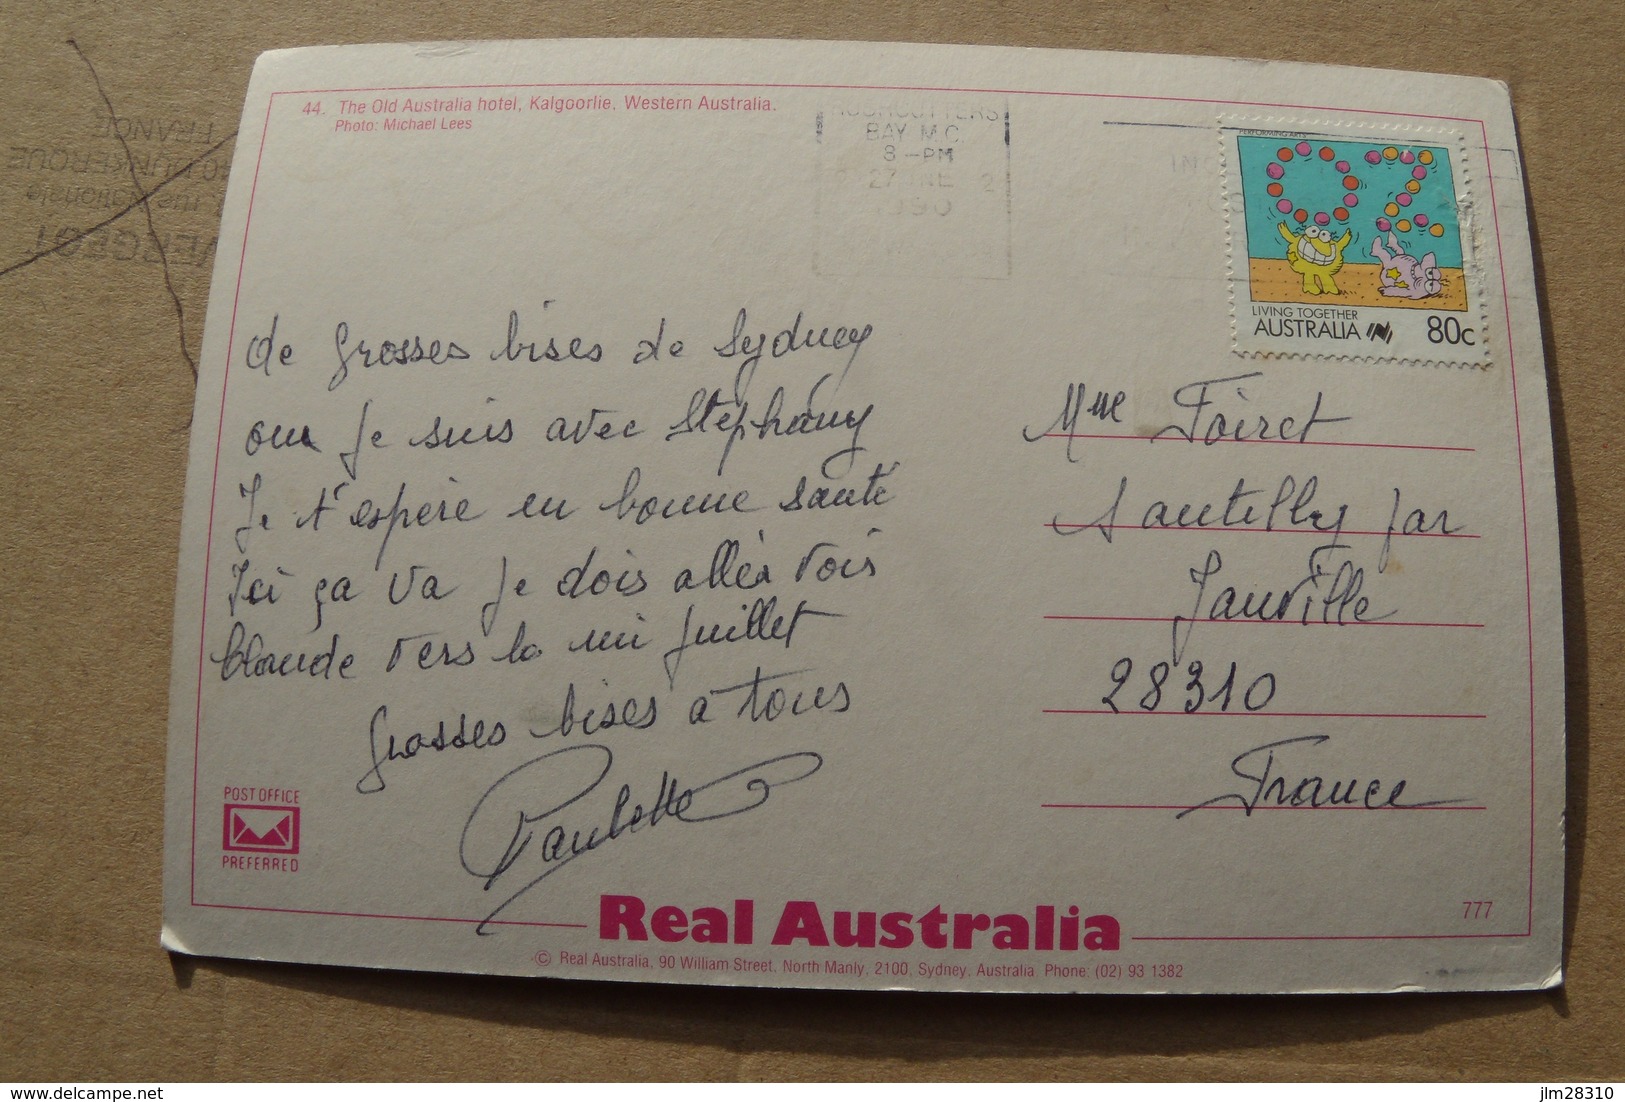 44. The Old Australia hotel, Kalgoorlie, Western Australia.
Photo: Michael Lees
BAY M.C
8-PM
27 JNE 2
1990
PERFORMING ARTS
OZ
LIVING TOGETHER
AUSTRALIA 80c
de grosses bises de Sydney
ou je suis avec Stephany
Je t'espère en bonne santé
Ici ça va je dois aller voir
Claude vers la mi juillet
grosses bises a tous
Paulette
Mme Foiret
Santilly par
Janville
28310
France
POST OFFICE
PREFERRED
Real Australia
777
© Real Australia, 90 William Street, North Manly, 2100, Sydney, Australia Phone: (02) 93 1382
FRANCE
DUNKERQUE
rue Nationale
jlm28310